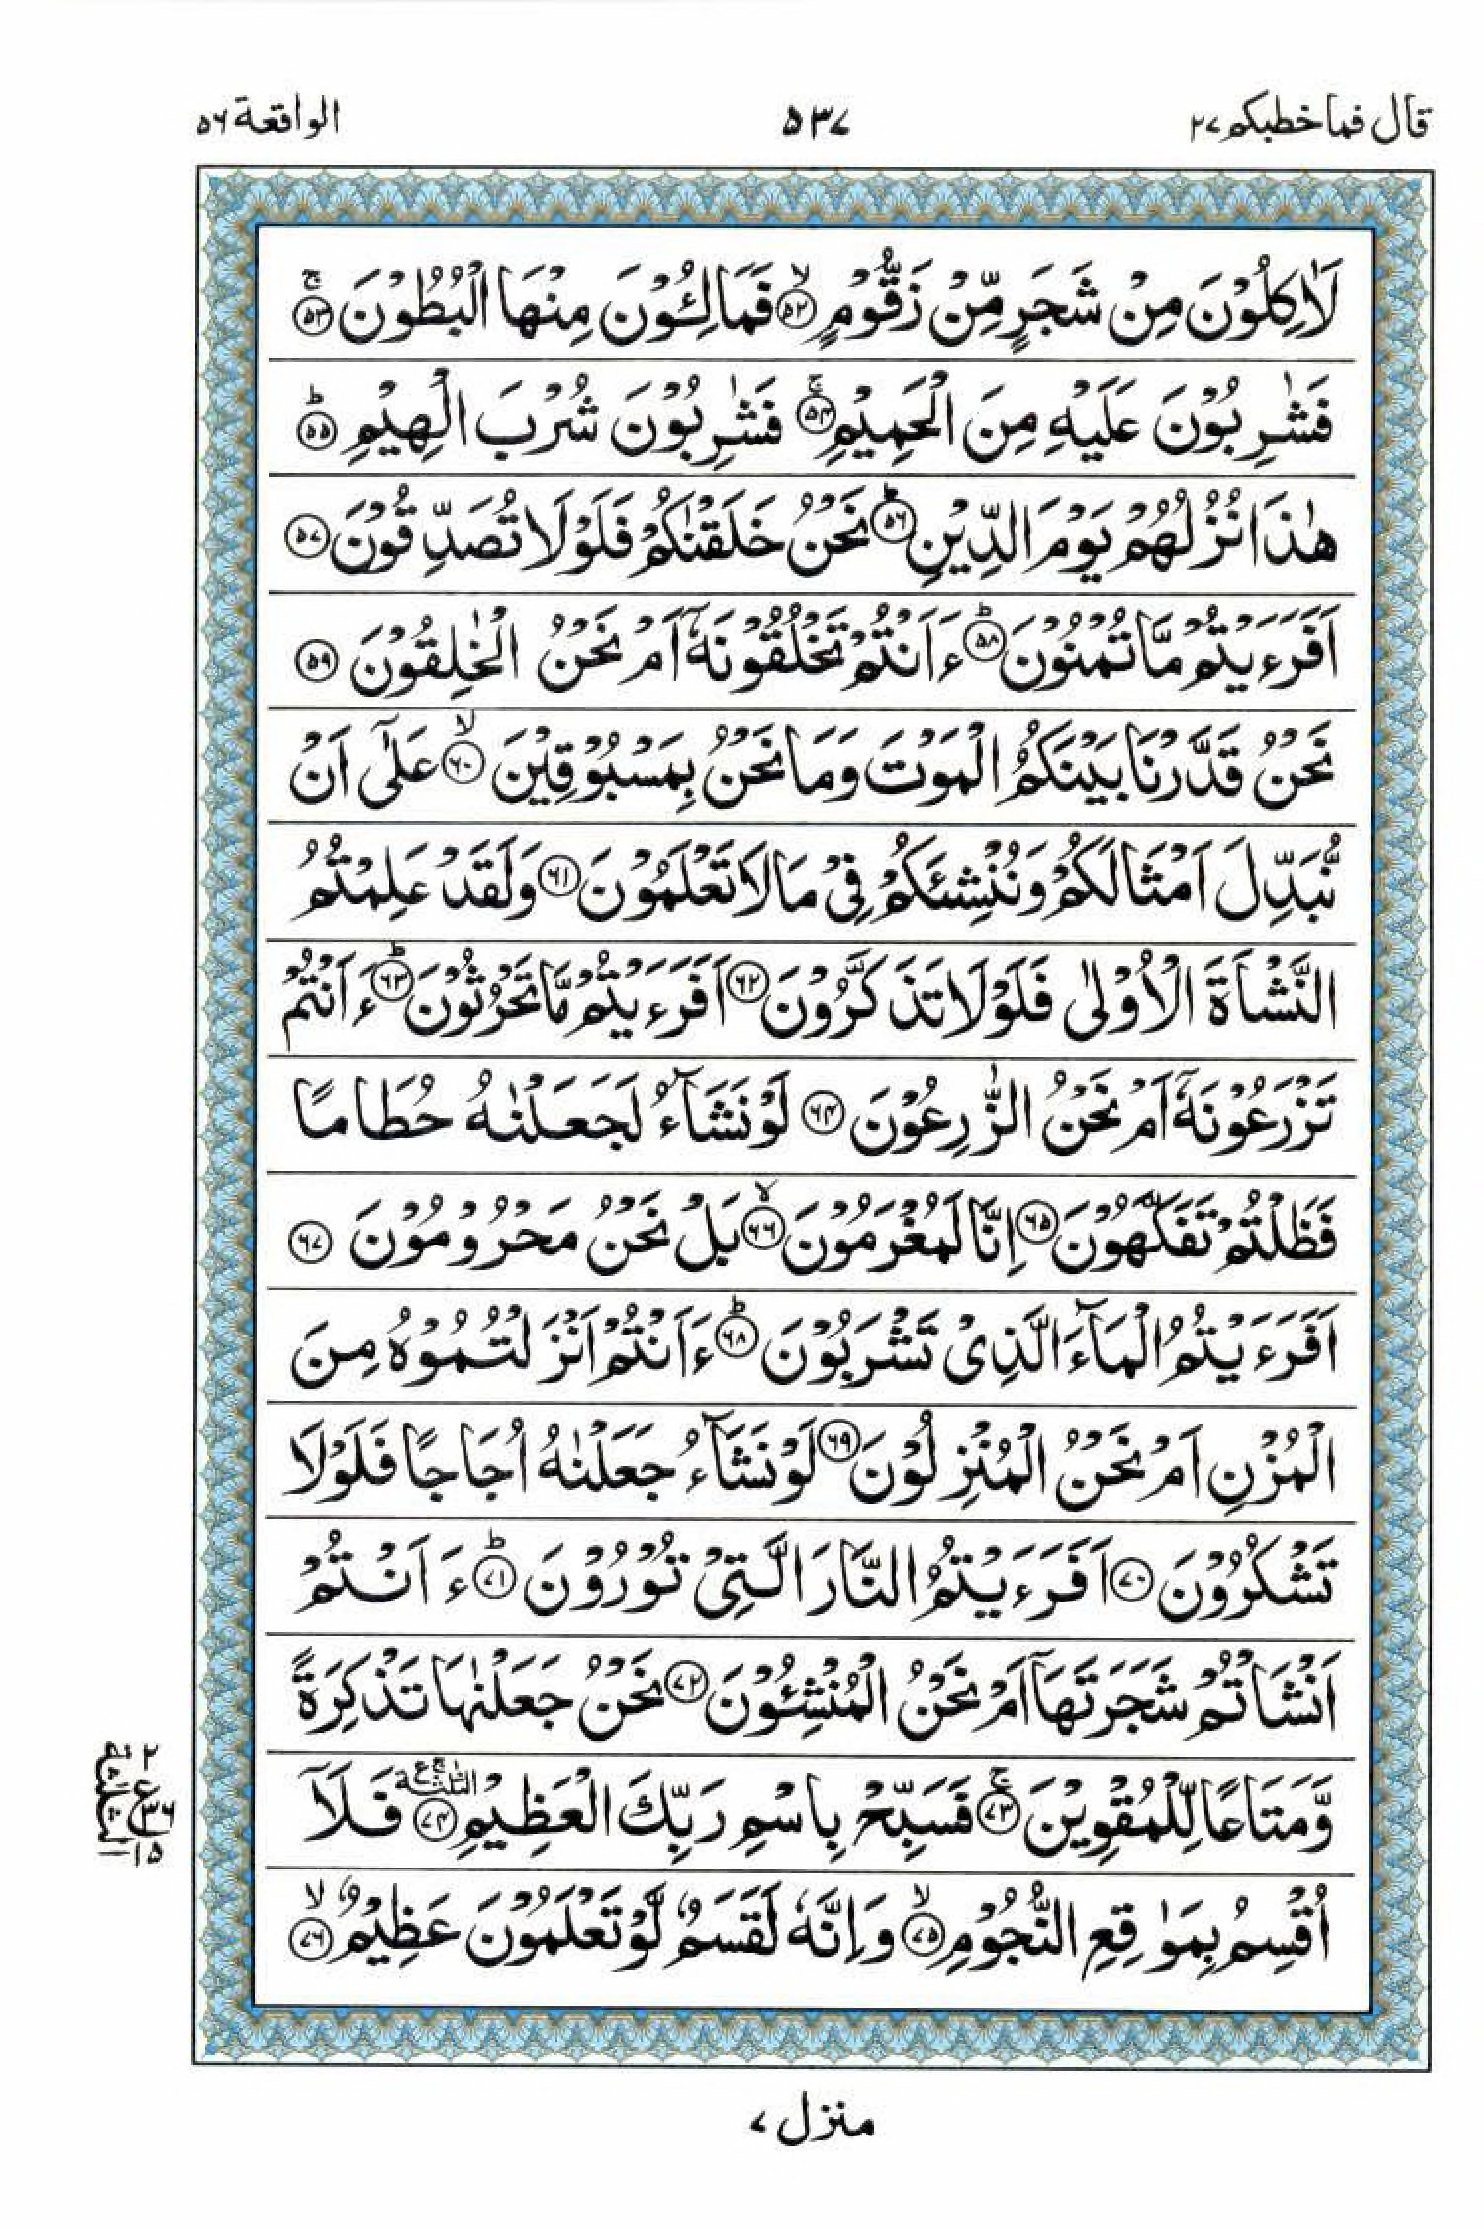 قال فما خطبكم ۲۷ ۵۳۷ الواقعة ۵۶
لَاٰكِلُوْنَ مِنْ شَجَرٍ مِّنْ زَقُّوْمٍ ۙ‏﴿۵۲﴾ فَمَالِـُٔوْنَ مِنْهَا الْبُطُوْنَ ۚ‏﴿۵۳﴾
فَشٰرِبُوْنَ عَلَيْهِ مِنَ الْحَمِيْمِ ۚ‏﴿۵۴﴾ فَشٰرِبُوْنَ شُرْبَ الْهِيْمِ ؕ‏﴿۵۵﴾
هٰذَا نُزُلُهُمْ يَوْمَ الدِّيْنِ ؕ‏﴿۵۶﴾ نَحْنُ خَلَقْنٰكُمْ فَلَوْلَا تُصَدِّقُوْنَ ﴿۵۷﴾
اَفَرَءَيْتُمْ مَّا تُمْنُوْنَ ؕ‏﴿۵۸﴾ ءَاَنْتُمْ تَخْلُقُوْنَهٗۤ اَمْ نَحْنُ الْخٰلِقُوْنَ ﴿۵۹﴾
نَحْنُ قَدَّرْنَا بَيْنَكُمُ الْمَوْتَ وَمَا نَحْنُ بِمَسْبُوْقِيْنَ ۙ‏﴿۶۰﴾ عَلٰٓى اَنْ
نُّبَدِّلَ اَمْثَالَكُمْ وَنُنْشِئَكُمْ فِىْ مَا لَا تَعْلَمُوْنَ ﴿۶۱﴾ وَلَقَدْ عَلِمْتُمُ
النَّشْاَةَ الْاُوْلٰى فَلَوْلَا تَذَكَّرُوْنَ ﴿۶۲﴾ اَفَرَءَيْتُمْ مَّا تَحْرُثُوْنَ ؕ‏﴿۶۳﴾ ءَاَنْتُمْ
تَزْرَعُوْنَهٗۤ اَمْ نَحْنُ الزّٰرِعُوْنَ ﴿۶۴﴾ لَوْ نَشَآءُ لَجَعَلْنٰهُ حُطَامًا
فَظَلْتُمْ تَفَكَّهُوْنَ ﴿۶۵﴾ اِنَّا لَمُغْرَمُوْنَ ۙ‏﴿۶۶﴾ بَلْ نَحْنُ مَحْرُوْمُوْنَ ﴿۶۷﴾
اَفَرَءَيْتُمُ الْمَآءَ الَّذِىْ تَشْرَبُوْنَ ؕ‏﴿۶۸﴾ ءَاَنْتُمْ اَنْزَلْتُمُوْهُ مِنَ
الْمُزْنِ اَمْ نَحْنُ الْمُنْزِلُوْنَ ﴿۶۹﴾ لَوْ نَشَآءُ جَعَلْنٰهُ اُجَاجًا فَلَوْلَا
تَشْكُرُوْنَ ﴿۷۰﴾ اَفَرَءَيْتُمُ النَّارَ الَّتِىْ تُوْرُوْنَ ؕ‏﴿۷۱﴾ ءَاَنْتُمْ
اَنْشَاْتُمْ شَجَرَتَهَاۤ اَمْ نَحْنُ الْمُنْشِـُٔوْنَ ﴿۷۲﴾ نَحْنُ جَعَلْنٰهَا تَذْكِرَةً
وَّمَتَاعًا لِّلْمُقْوِيْنَ ۚ‏﴿۷۳﴾ فَسَبِّحْ بِاسْمِ رَبِّكَ الْعَظِيْمِ ﴿۷۴﴾ فَلَاۤ
اُقْسِمُ بِمَوٰقِعِ النُّجُوْمِ ۙ‏﴿۷۵﴾ وَاِنَّهٗ لَقَسَمٌ لَّوْ تَعْلَمُوْنَ عَظِيْمٌ ۙ‏﴿۷۶﴾
۲
ع
۳۶
۱۵
الثلثة
منزل ۷